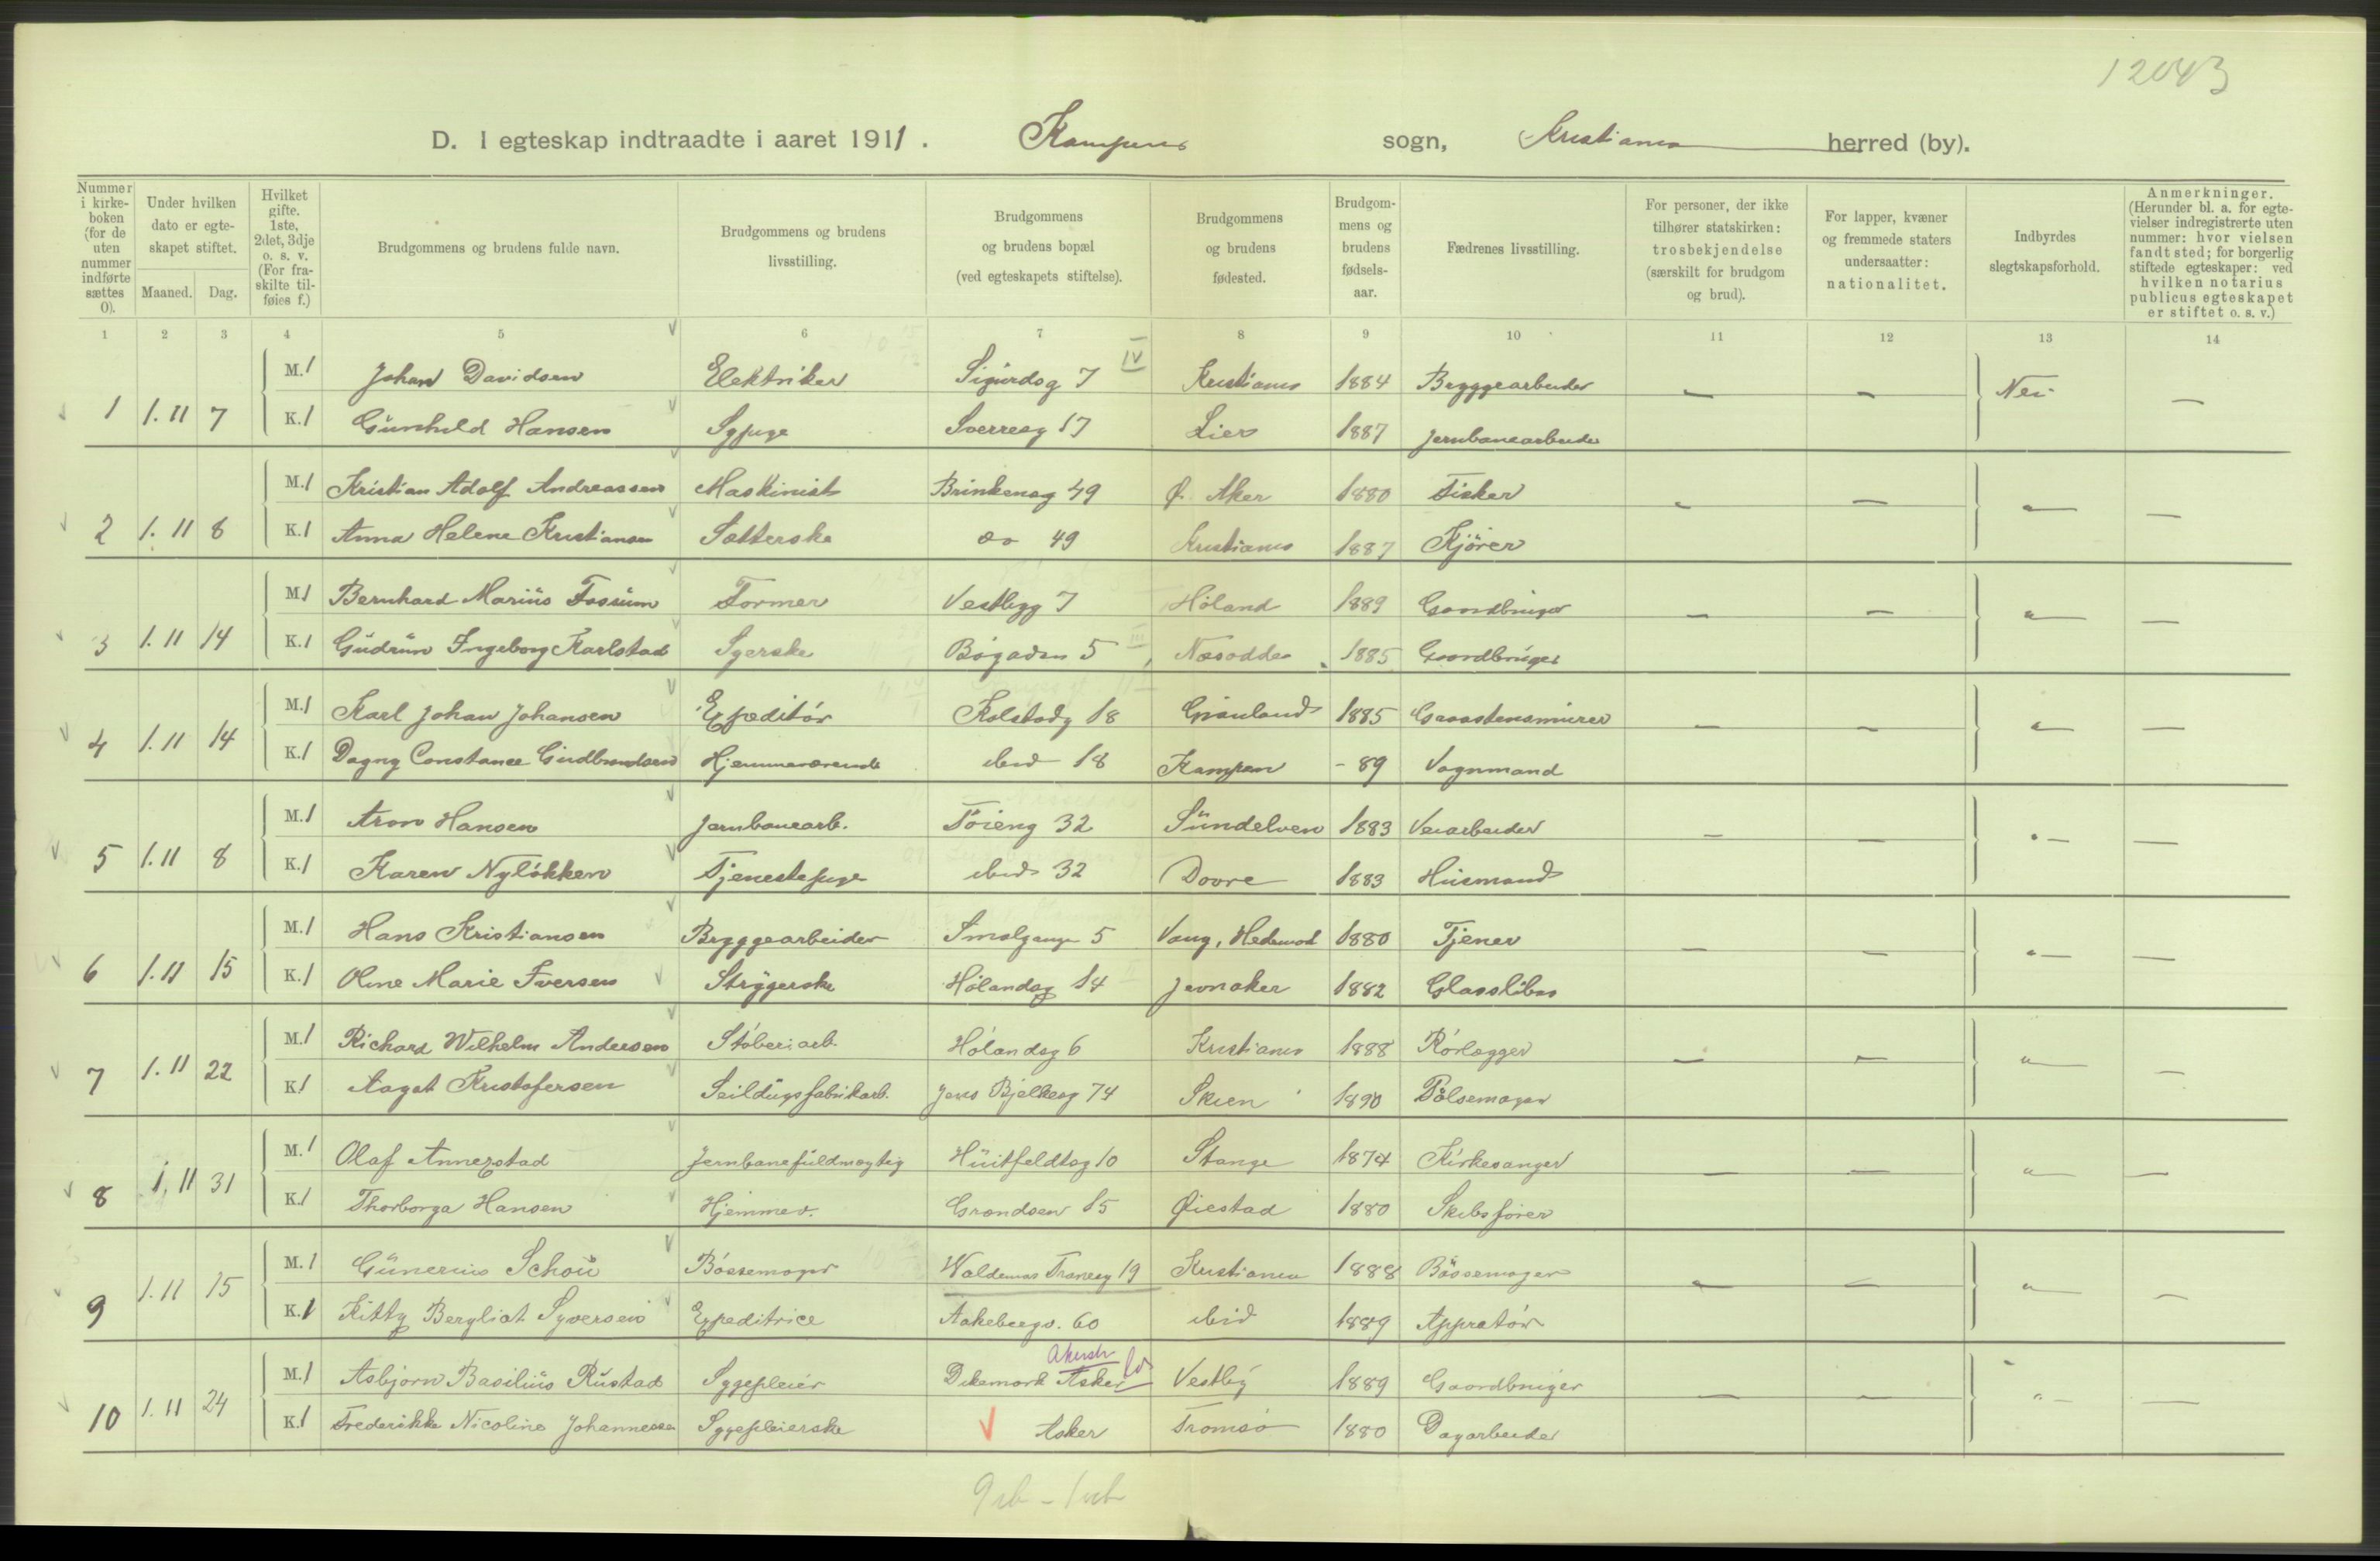 12043
D. I egteskap indtraadte i aaret 1911. Kampens sogn, Kristiania herred (by).
Nummer i kirkeboken (for de uten nummer indførte sættes 0).
Under hvilken dato er egteskapet stiftet.
Maaned. Dag.
Hvilket gifte. 1ste, 2det, 3dje o. s. v. (For fraskilte tilføies f.)
Brudgommens og brudens fulde navn.
Brudgommens og brudens livsstilling.
Brudgommens og brudens bopæl (ved egteskapets stiftelse).
Brudgommens og brudens fødested.
Brudgommens og brudens fødselsaar.
Fædrenes livsstilling.
For personer, der ikke tilhører statskirken: trosbekjendelse (særskilt for brudgom og brud).
For lapper, kvæner og fremmede staters undersaatter: nationalitet.
Indbyrdes slegtskapsforhold.
Anmerkninger. (Herunder bl. a. for egtevielser indregistrerte uten nummer: hvor vielsen fandt sted; for borgerlig stiftede egteskaper: ved hvilken notarius publicus egteskapet er stiftet o. s. v.)
1 2 3 4 5 6 7 8 9 10 11 12 13 14
M. 1 Johan Davidsen Elektriker Sigurdsg 7 IV Kristiania 1884 Bryggearbeider — — Nei —
1 1.11 7 K. 1 Gunhild Hansen Sypige Sverresg 17 Lier 1887 Jernbanearbeider
M. 1 Kristian Adolf Andreassen Maskinist Brinkensg 49 Ø. Aker 1880 Fisker — — " —
2 1.11 8 K. 1 Anna Helene Kristiansen Sætterske do 49 Kristiania 1887 Kjører
M. 1 Bernhard Marius Fossum Former Vestbyg 7 Høland 1889 Gaardbruger — — " —
3 1.11 14 K. 1 Gudrun Ingeborg Karlstad Syerske Bøgaden 5 III Næsodden 1885 Gaardbruger
M. 1 Karl Johan Johansen Expeditør Kolstadg 18 Grønland 1885 Graastensmurer — — " —
4 1.11 14 K. 1 Dagny Constance Gudbrandsen Hjemmeværende ibid 18 Kampen - 89 Vognmand
M. 1 Aron Hansen Jernbanearb. Tøieng 32 Sundelven 1883 Veiarbeider — — " —
5 1.11 8 K. 1 Karen Nyløkken Tjenestepige ibid 32 Dovre 1883 Husmand
M. 1 Hans Kristiansen Bryggearbeider Smalgangen 5 Vang, Hedemark 1880 Tjener — — " —
6 1.11 15 K. 1 Oline Marie Iversen Strygerske Hølandsg 14 Jevnaker 1882 Glassliber
M. 1 Richard Wilhelm Andersen Støberiarb. Hølandsg 6 Kristiania 1888 Rørlægger — — " —
7 1.11 22 K. 1 Aagot Kristofersen Seildugsfabrikarb. Jens Bjelkesg 74 Skien 1890 Pølsemager
M. 1 Olaf Annerstad Jernbanefuldmægtig Huitfeldtsg 10 Stange 1874 Kirkesanger — — " —
8 1.11 31 K. 1 Thorborga Hansen Hjemmev. Grændsen 15 Øiestad 1880 Skibsfører
M. 1 Gunerius Schou Bøssemager Waldemar Tranesg 19 Kristiania 1888 Bøssemager — — " —
9 1.11 15 K. 1 Kitty Bergliot Syversen Expeditrice Aakebergv. 60 ibid 1889 Appratør
Akersh.
M. 1 Asbjørn Basilius Rustad Sygepleier Dikemark Asker Vestby 1889 Gaardbruger — — " —
10 1.11 24 K. 1 Frederikke Nicoline Johannesen Sygepleierske Asker Tromsø 1880 Dagarbeider